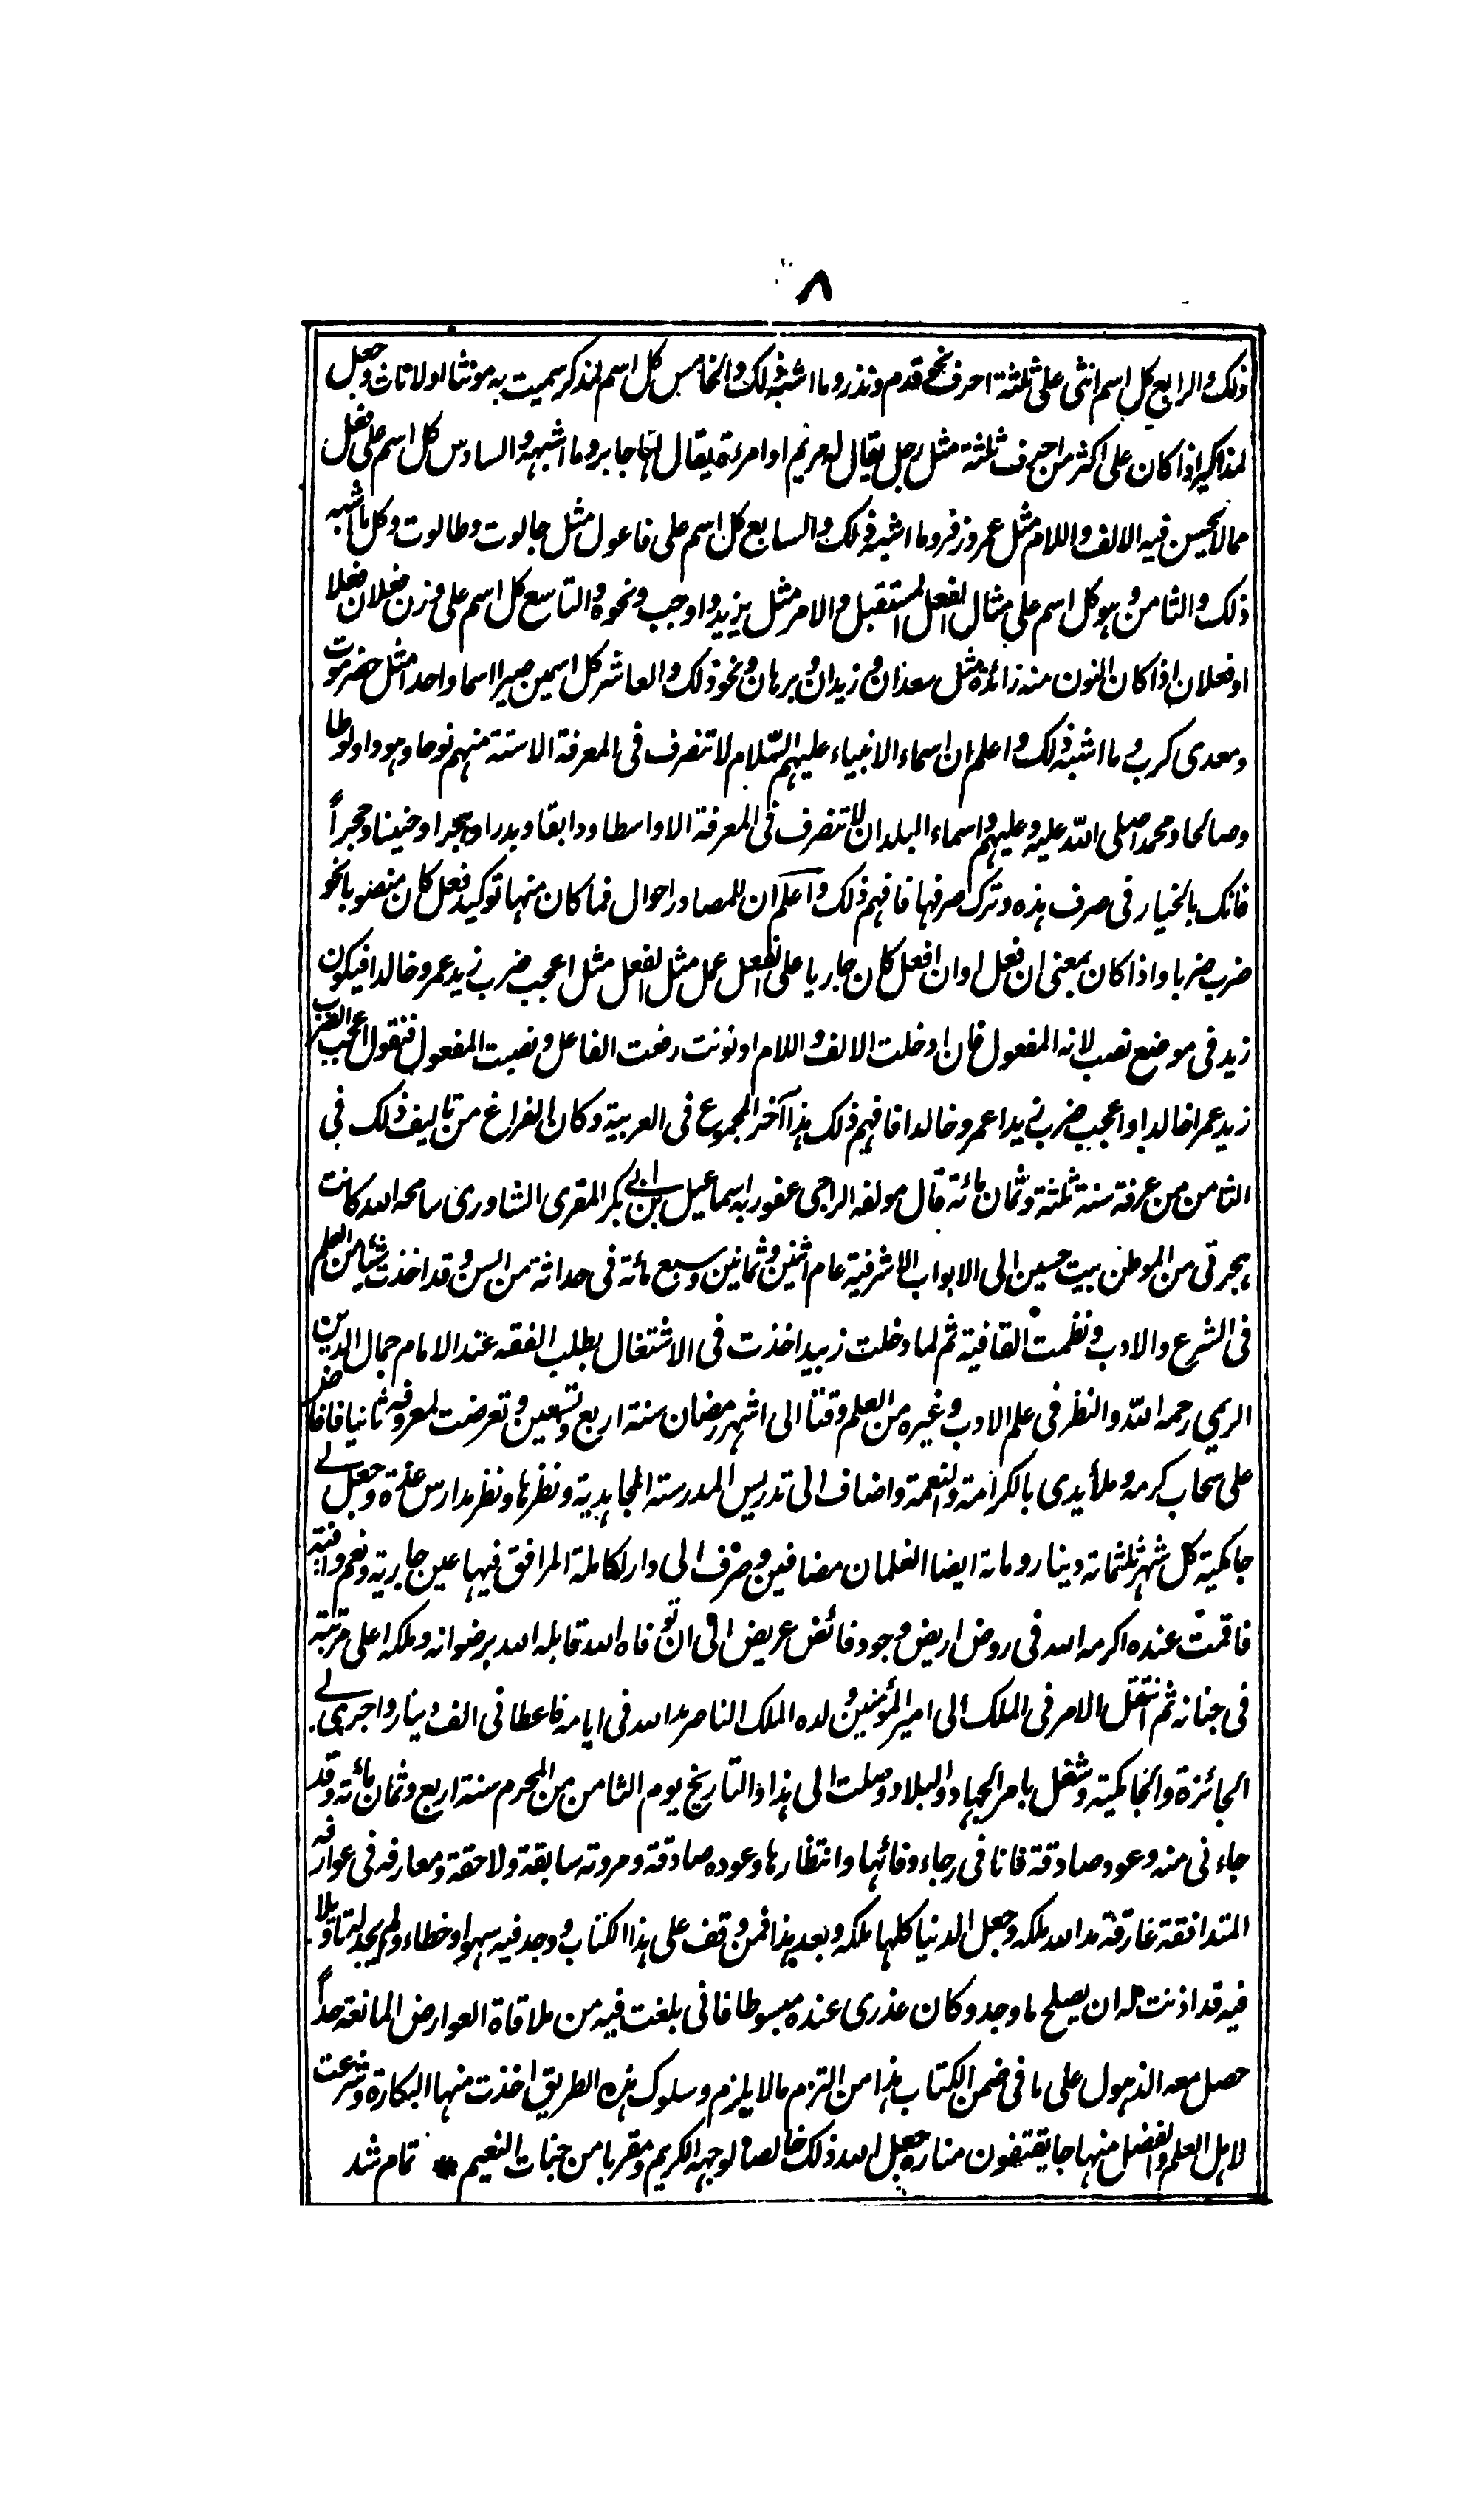 ٨
ذلك والرابع كل اسم انثى على ثلثة احرف نحو قدم ونذر وما اشبه ذلك والخامس كل اسم لمذكر سميت به مونثا او لاناث وجعل
لمذاكير اذا كان على اكثر من احرف ثلثة مثل رجل يقال له مريم او امرءة يقال لها جابر وما اشبهه والسادس كل اسم على فعل
مما لا يحسن فيه الالف واللام مثل عمر وزفر وما اشبه ذلك والسابع كل اسم على فاعول مثل جالوت وطالوت وكل ما اشبه
ذلك والثامن وهو كل اسم على مثال الفعل المستقبل والامر مثل يزيد واوجب ونحوه والتاسع كل اسم على وزن فعلان فعلا
او فعلان اذا كان النون منه زائدة مثل سعدان وزيدان وبرهان ونحو ذلك والعاشر كل اسمين صيرا اسما واحدا مثل حضرموت
ومعدى كرب وما اشبه ذلك واعلم ان اسماء الانبياء عليهم السّلام لا تنصرف فى المعرفة الا ستة منهم نوحا وهودا ولوطا
وصالحا ومحمدا صلى اللّه عليه وعليهم واسماء البلدان لا تنصرف فى المعرفة الا واسطا ودابقا وبدرا وهجرا وحنينا وحجراً
فانك بالخيار فى صرف هذه وترك صرفها فافهم ذلك واعلم ان للمصادر احوال فما كان منها توكيد فعل كان منصوبا نحو
ضرب ضربا واذا كان بمعنى ان فعل او ان افعل كان جاريا على الفعل عمل مثل الفعل مثل اعجب ضرب زيد عمرو خالدا فيكون
زيد فى موضع نصب لانه المفعول فان ادخلت الالف واللام او نونت رفعت الفاعل ونصبت المفعول فتقول اعجب الضرب
زيد عمرا خالدا واعجب ضرب زيدا عمرو خالدا فافهم ذلك هذا آخر المجموع فى العربية وكان الفراغ من تاليف ذلك فى
الثامن من عرفة سنة ثلثة وثمان مائة قال مولفه الراجى عفو ربه اسماعيل بن ابى بكر المقرى الشاورى سامحه الله كانت
هجرتى من الموطن بيت حسين الى الابواب الاشرفية عام اثنين وثمانين وسبع مائة فى حداثة من السن وقد اخذت شيئا من العلم
فى الشرع والادب ونظمت القافية ثم لما دخلت زبيد اخذت فى الاشتغال بطلب الفقه عند الامام جمال الدين
الريمى رحمه اللّه والنظر فى علم الادب وغيره من العلم وقتا الى اشهر رمضان سنة اربع وتسعين وتعرضت لمعروفه ثانيا فافاض
على سحاب كرمه وملأ يدى بالكرامة والنعمة واضاف الى تدريس المدرسة المجاهدية ونظرها ونظر مدارس عدة وجعل لى
جامكية كل شهر ثلثمائة دينار ومائة ايضا الغلمان مضافين وصرف الى دار لكاملة المرافق فيها عين جارية ونعم وافية
فاقمت عنده اكرمه الله فى روض اريض وجود فائض عريض الى ان توفاه الله قابله الله برضوانه وملكه اعلى مرتبة
فى جنانه ثم انتقل الامر فى الملك الى امير المؤمنين ولده الملك الناصر مد الله فى ايامه فاعطانى الف دينار واجرى لى
الجائزة والجامكية وشغل بامر الجهاد والبلاد وصلت الى هذا والتاريخ يوم الثامن من المحرم سنة اربع وثمان مائة وقد
جاءنى منه وعود صادقة فانا فى رجاء وفائها وانتظارها وعوده صادقة ومروته سابقة ولاحقة ومعارفه فى عوارفه
المتدافقة غارقة مد الله ملكه وجعل الدنيا كلها ملكه وبعد هذا فمن وقف على هذا الكتاب ووجد فيه سهوا وخطاء ولم يجد له تاويلا
فيه قد اذنت له ان يصلح ما وجد وكان عذرى عنده مبسوطا فانى بلغت فيه من ملاقاة العوارض المانعة حداً
حصل معه الذهول على ما فى ضمن الكتاب هذا من التزم مالا يلزم وسلوك هذه الطريق اخذت منها البكارة وشرعت
لاهل العلم والفضل منهاجا يقتفون مناره جعل الله ذلك خالصا لوجهه الكريم ومقربا من جنات النعيم * تمام شد